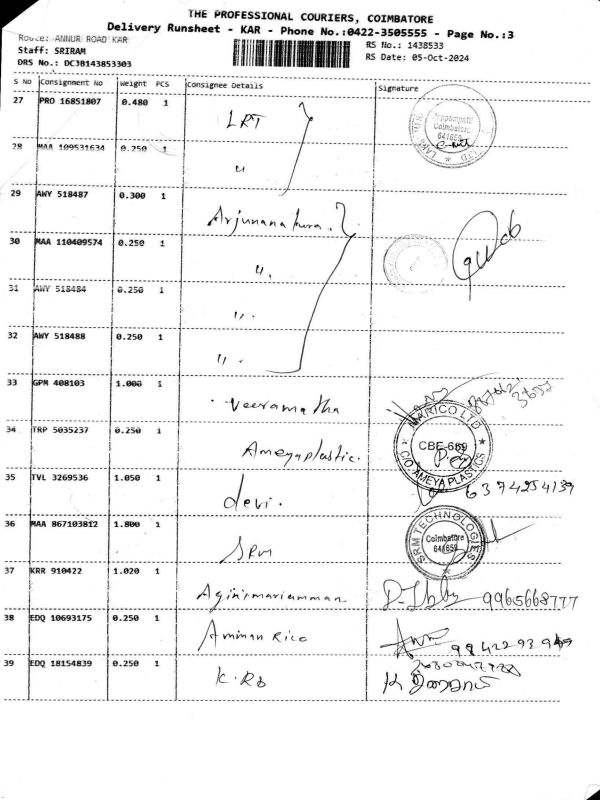 THE PROFESSIONAL COURIERS, COIMBATORE
Delivery Runsheet - KAR - Phone No.:0422-3505555 - Page No.:3
Route: ANNUR ROAD KAR
RS No.: 1438533
Staff: SRIRAM
RS Date: 05-Oct-2024
DRS No.: DC3B143853303
S No Consignment No Weight PCS Consignee Details Signature
27 PRO 16851807 0.480 1 LRT
Coimbatore
28 MAA 109531634 0.250 1 "
29 AWY 518487 0.300 1 Arjunana
30 MAA 110409574 0.250 1 ".
31 AWY 518484 0.250 1 ".
32 AWY 518488 0.250 1 ".
33 GPM 408103 1.000 1 Veeramatha
3657
MARICO LTD
34 TRP 5035237 0.250 1 Ameyaplastic. CBE-669
C/O AMEYA PLASTICS
35 TVL 3269536 1.050 1 devi. 6374254139
36 MAA 867103812 1.800 1 SRM
SRM TECHNOLOGIES
Coimbatore
641659
37 KRR 910422 1.020 1 Aginimariamman 9965668777
38 EDQ 10693175 0.250 1 Amman Rice
39 EDQ 18154839 0.250 1 K.